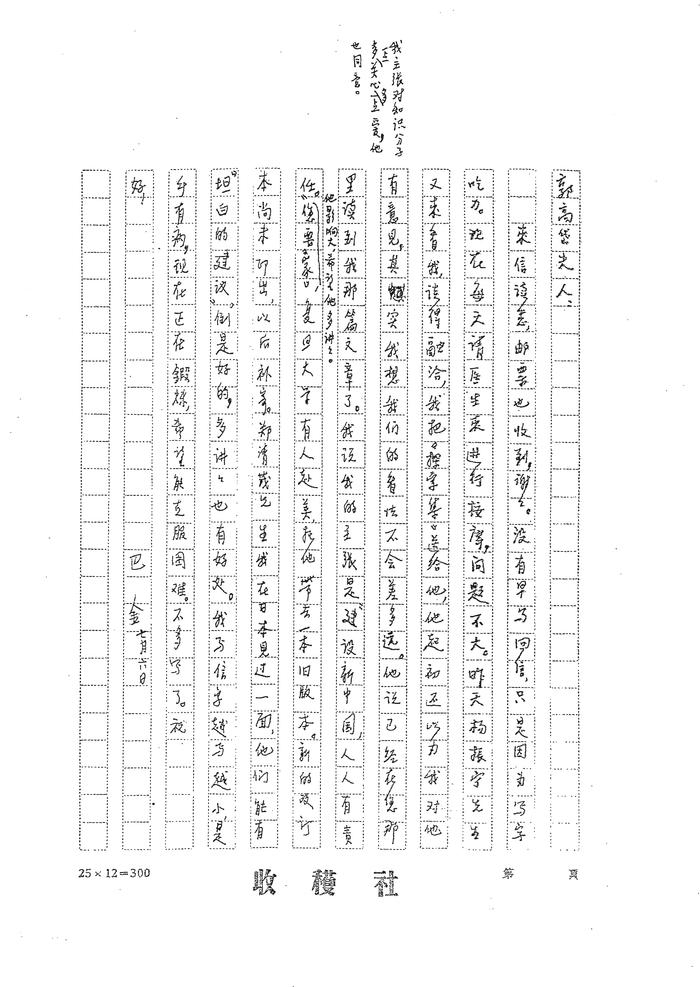 我主张对知识分子
多关心一点，多一点爱，他
也同意。
郭高岱夫人：
来信读悉，邮票也收到，谢谢。没有早写回信，只是因为写字
吃力。现在每天请医生来进行按摩，问题不大。昨天杨振宁先生
又来看我，谈得融洽，我把《探索集》送给他，他起初还以为我对他
有意见，其实我想我们的看法不会差多远。他说已经在您那
里读到我那篇文章了。我说我的主张是“建设新中国，人人有责
他影响大，希望他多讲讲。
任。”《随想录》，复旦大学有人赴美，托他带去一本旧版本。新的改订
本尚未印出，以后补寄。郑清茂先生我在日本见过一面，他们能有
坦白的建议，倒是好的，多讲讲也有好处。我写信字越写越小，是
手有病，现在正在锻炼，希望能克服困难。不多写了。祝
好！
巴金 七月六日
25×12=300
收穫社
第 頁